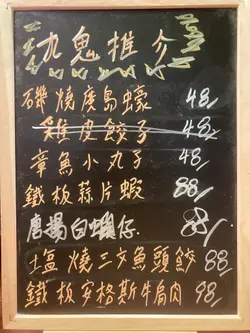 九鬼推介
磯燒廣島蠔 48/
雞皮餃子 48/
章魚小丸子 48/
鐵板蒜片蝦 88/
唐揚白蝦仔 88/
塩燒三文魚頭餃 88/
鐵板安格斯牛肩肉 98/